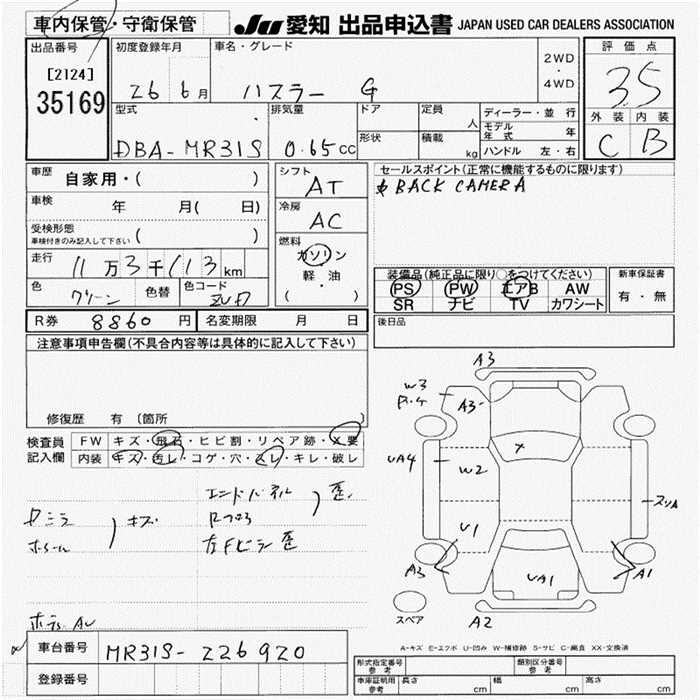 車内保管・守衛保管
JU 愛知 出品申込書 JAPAN USED CAR DEALERS ASSOCIATION
出品番号
[2124]
35169
初度登録年月
26 6月
車名・グレード
ハスラー G
2WD
・
4WD
評価点
3.5
外装 内装
C B
型式
DBA-MR31S
排気量
0.65cc
ドア
形状
定員
人
積載
kg
ディーラー・並行
モデル年式 年
ハンドル 左・右
車歴
自家用・( )
車検
年 月( 日)
受検形態
車検付きのみ記入して下さい ( )
走行
11万3千113km
色
グリーン
色替
色コード
シフト
AT
冷房
AC
燃料
ガソリン
軽・油
( )
セールスポイント(正常に機能するものに限ります)
BACK CAMERA
装備品(純正品に限り○をつけてください)
PS PW エアB AW
SR ナビ TV カワシート
新車保証書
有・無
R券 8860円
名変期限 月 日
後日品
注意事項申告欄(不具合内容等は具体的に記入して下さい)
修復歴 有(箇所 )
検査員記入欄
FW キズ・飛石・ヒビ割・リペア跡・X要
内装 キズ・汚レ・コゲ・穴・スレ・キレ・破レ
エンドパネル
歪
キズ
左Fピラー 歪
A3
W3
A3
UA4
W2
U1
A3
UA1
A1
スリA
A2
スペア
A-キズ E-エクボ U-凹み W-補修跡 S-サビ C-腐食 XX-交換済
車台番号
MR31S-226920
登録番号
形式指定番号
参考
類別区分番号
参考
車庫証明用
参考
長さ cm
幅 cm
高さ cm